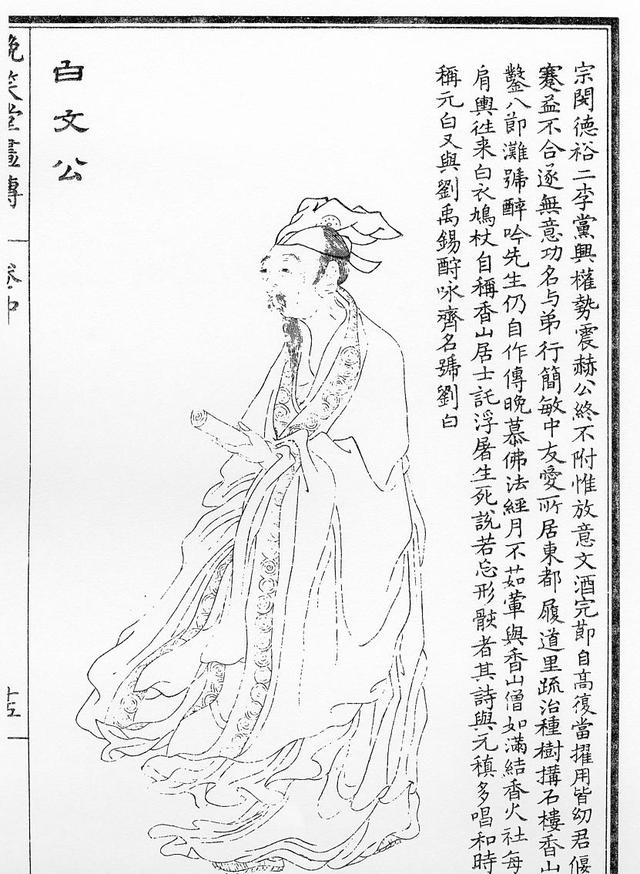 宗閔德裕二李黨興權勢震赫公終不附惟放意文酒完節自高復當擢用皆幼君偃
蹇益不合遂無意功名与弟行簡敏中友愛所居東都履道里疏治種樹搆石樓香山
鑿八節灘號醉吟先生仍自作傳晚慕佛法經月不茹葷與香山僧如滿結香火社每
肩輿徃来白衣鳩杖自稱香山居士託浮屠生死說若忘形骸者其詩與元稹多唱和時
稱元白又與劉禹錫酧咏齊名號劉白
白文公
晚笑堂畫傳
卷中
十五